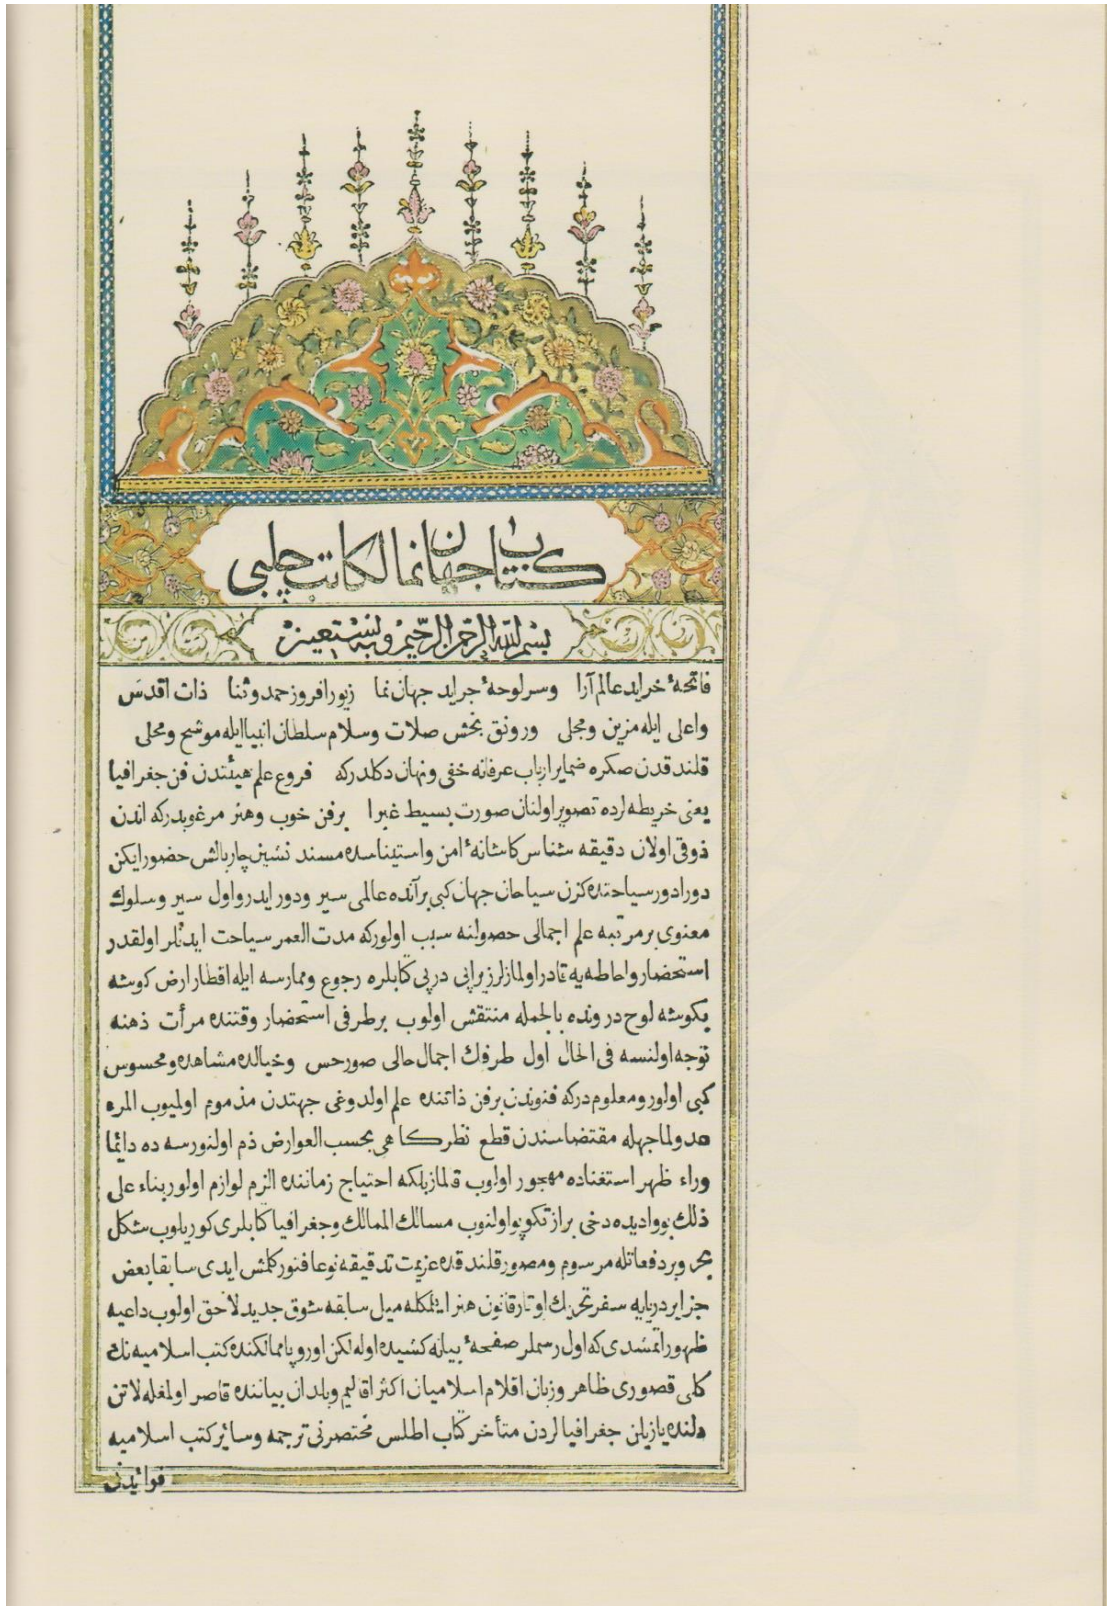 كتاب جهان نما لكاتب چلبى
بسم الله الرحمن الرحيم وبه نستعين
فاتحهٔ خرايد عالم آرا وسرلوحهٔ جرايد جهان نما زيور افروز حمد وثنا ذات اقدس
واعلى ايله مزين ومجلى ورونق بخش صلات وسلام سلطان انبيا ايله موشح ومحلى
قلندقدن صكره ضماير ارباب عرفانه خفى ونهان دكلدركه فروع علم هيئتدن فن جغرافيا
يعنى خريطه لرده تصوير اولنان صورت بسيط غبرا برفن خوب وهنر مرغوبدركه اندن
ذوقى اولان دقيقه شناس كاشانهٔ امن واستيناسده مسند نشين چاربالش حضور ايكن
دورادور سياحتده كزن سياحان جهان كبى برآنده عالمى سير ودور ايدر واول سير وسلوك
معنوى برمرتبه علم اجمالى حصولنه سبب اولوركه مدت العمر سياحت ايدنلر اولقدر
استحضار واحاطه يه قادر اولمازلر زيرا پى درپى كتابلره رجوع وممارسه ايله اقطار ارض كوشه
بكوشه لوح درونده بالجمله منتقش اولوب برطرفى استحضار وقتنده مرأت ذهنه
توجه اولنسه فى الحال اول طرفك اجمال حالى صور حس وخيالده مشاهده ومحسوس
كبى اولور ومعلومدركه فنوندن برفن ذاتنده علم اولدوغى جهتدن مذموم اولميوب المرء
عدو لما جهله مقتضاسندن قطع نظر كاهى بحسب العوارض ذم اولنورسه ده دائما
وراء ظهر استغناده مهجور اولوب قلماز بلكه احتياج زماننده الزم لوازم اولور بناء على
ذلك بو واديده دخى براز تكوپو اولنوب مسالك الممالك وجغرافيا كتابلرى كوريلوب شكل
بحر وبر دفعاتله مرسوم ومصور قلندقده عزيمت تدقيقه نوعا فتور كلمش ايدى سابقا بعض
جزاير دريايه سفر تحريك اوتار قانون هنر ايتمكله ميل سابقه شوق جديد لاحق اولوب داعيه
ظهور اتمشدى كه اول رسملر صفحهٔ بيانه كشيده اوله لكن اوروپا ممالكنده كتب اسلاميه نك
كلى قصورى ظاهر وزبان اقلام اسلاميان اكثر اقاليم وبلدان بياننده قاصر اولمغله لاتن
دلنده يازيلن جغرافيالردن متأخر كتاب اطلس مختصرنى ترجمه وساير كتب اسلاميه
فوائدن